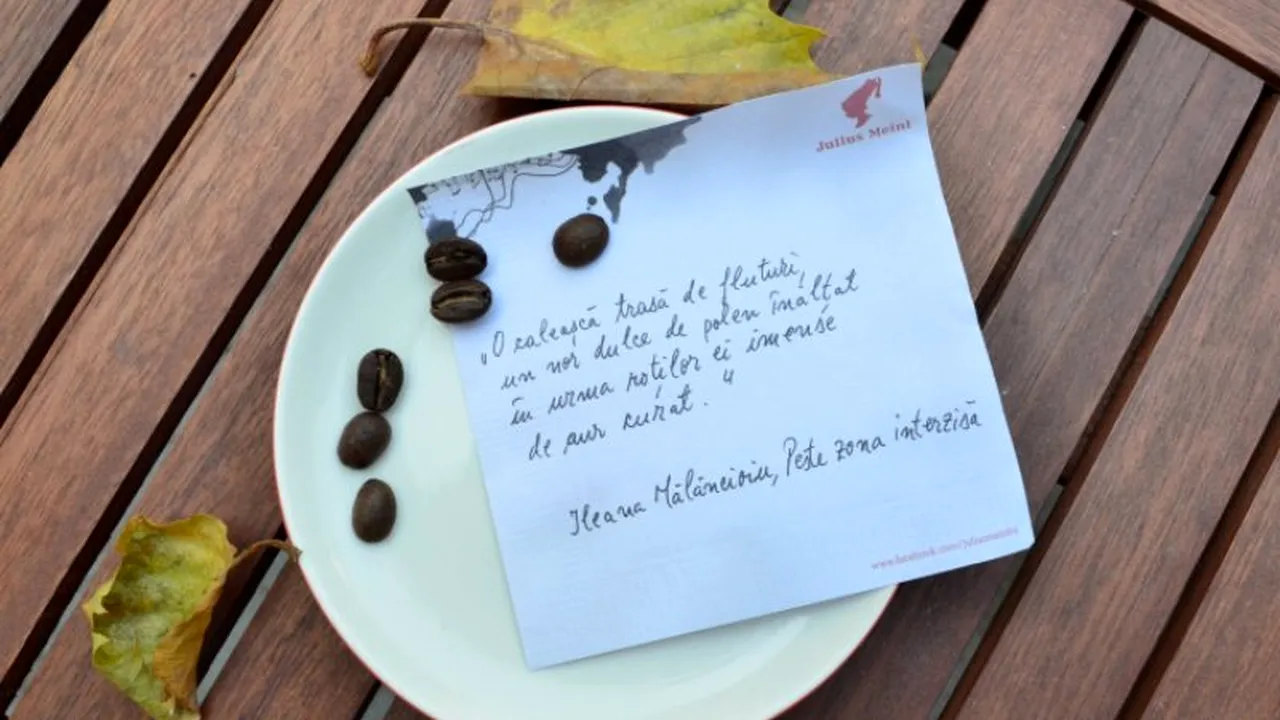 Julius Meinl
„O calească trasă de fluturi,
un nor dulce de polen înălțat
în urma roților ei imense
de aur curat."
Ileana Mălăncioiu, Peste zona interzisă